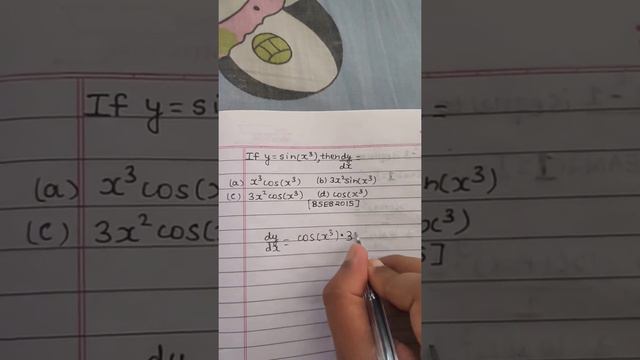 If y = sin(x³), then dy/dx =
(a) x³cos(x³) (b) 3x²sin(x³)
(c) 3x²cos(x³) (d) cos(x³)
[BSEB 2015]
dy/dx = cos(x³)·3